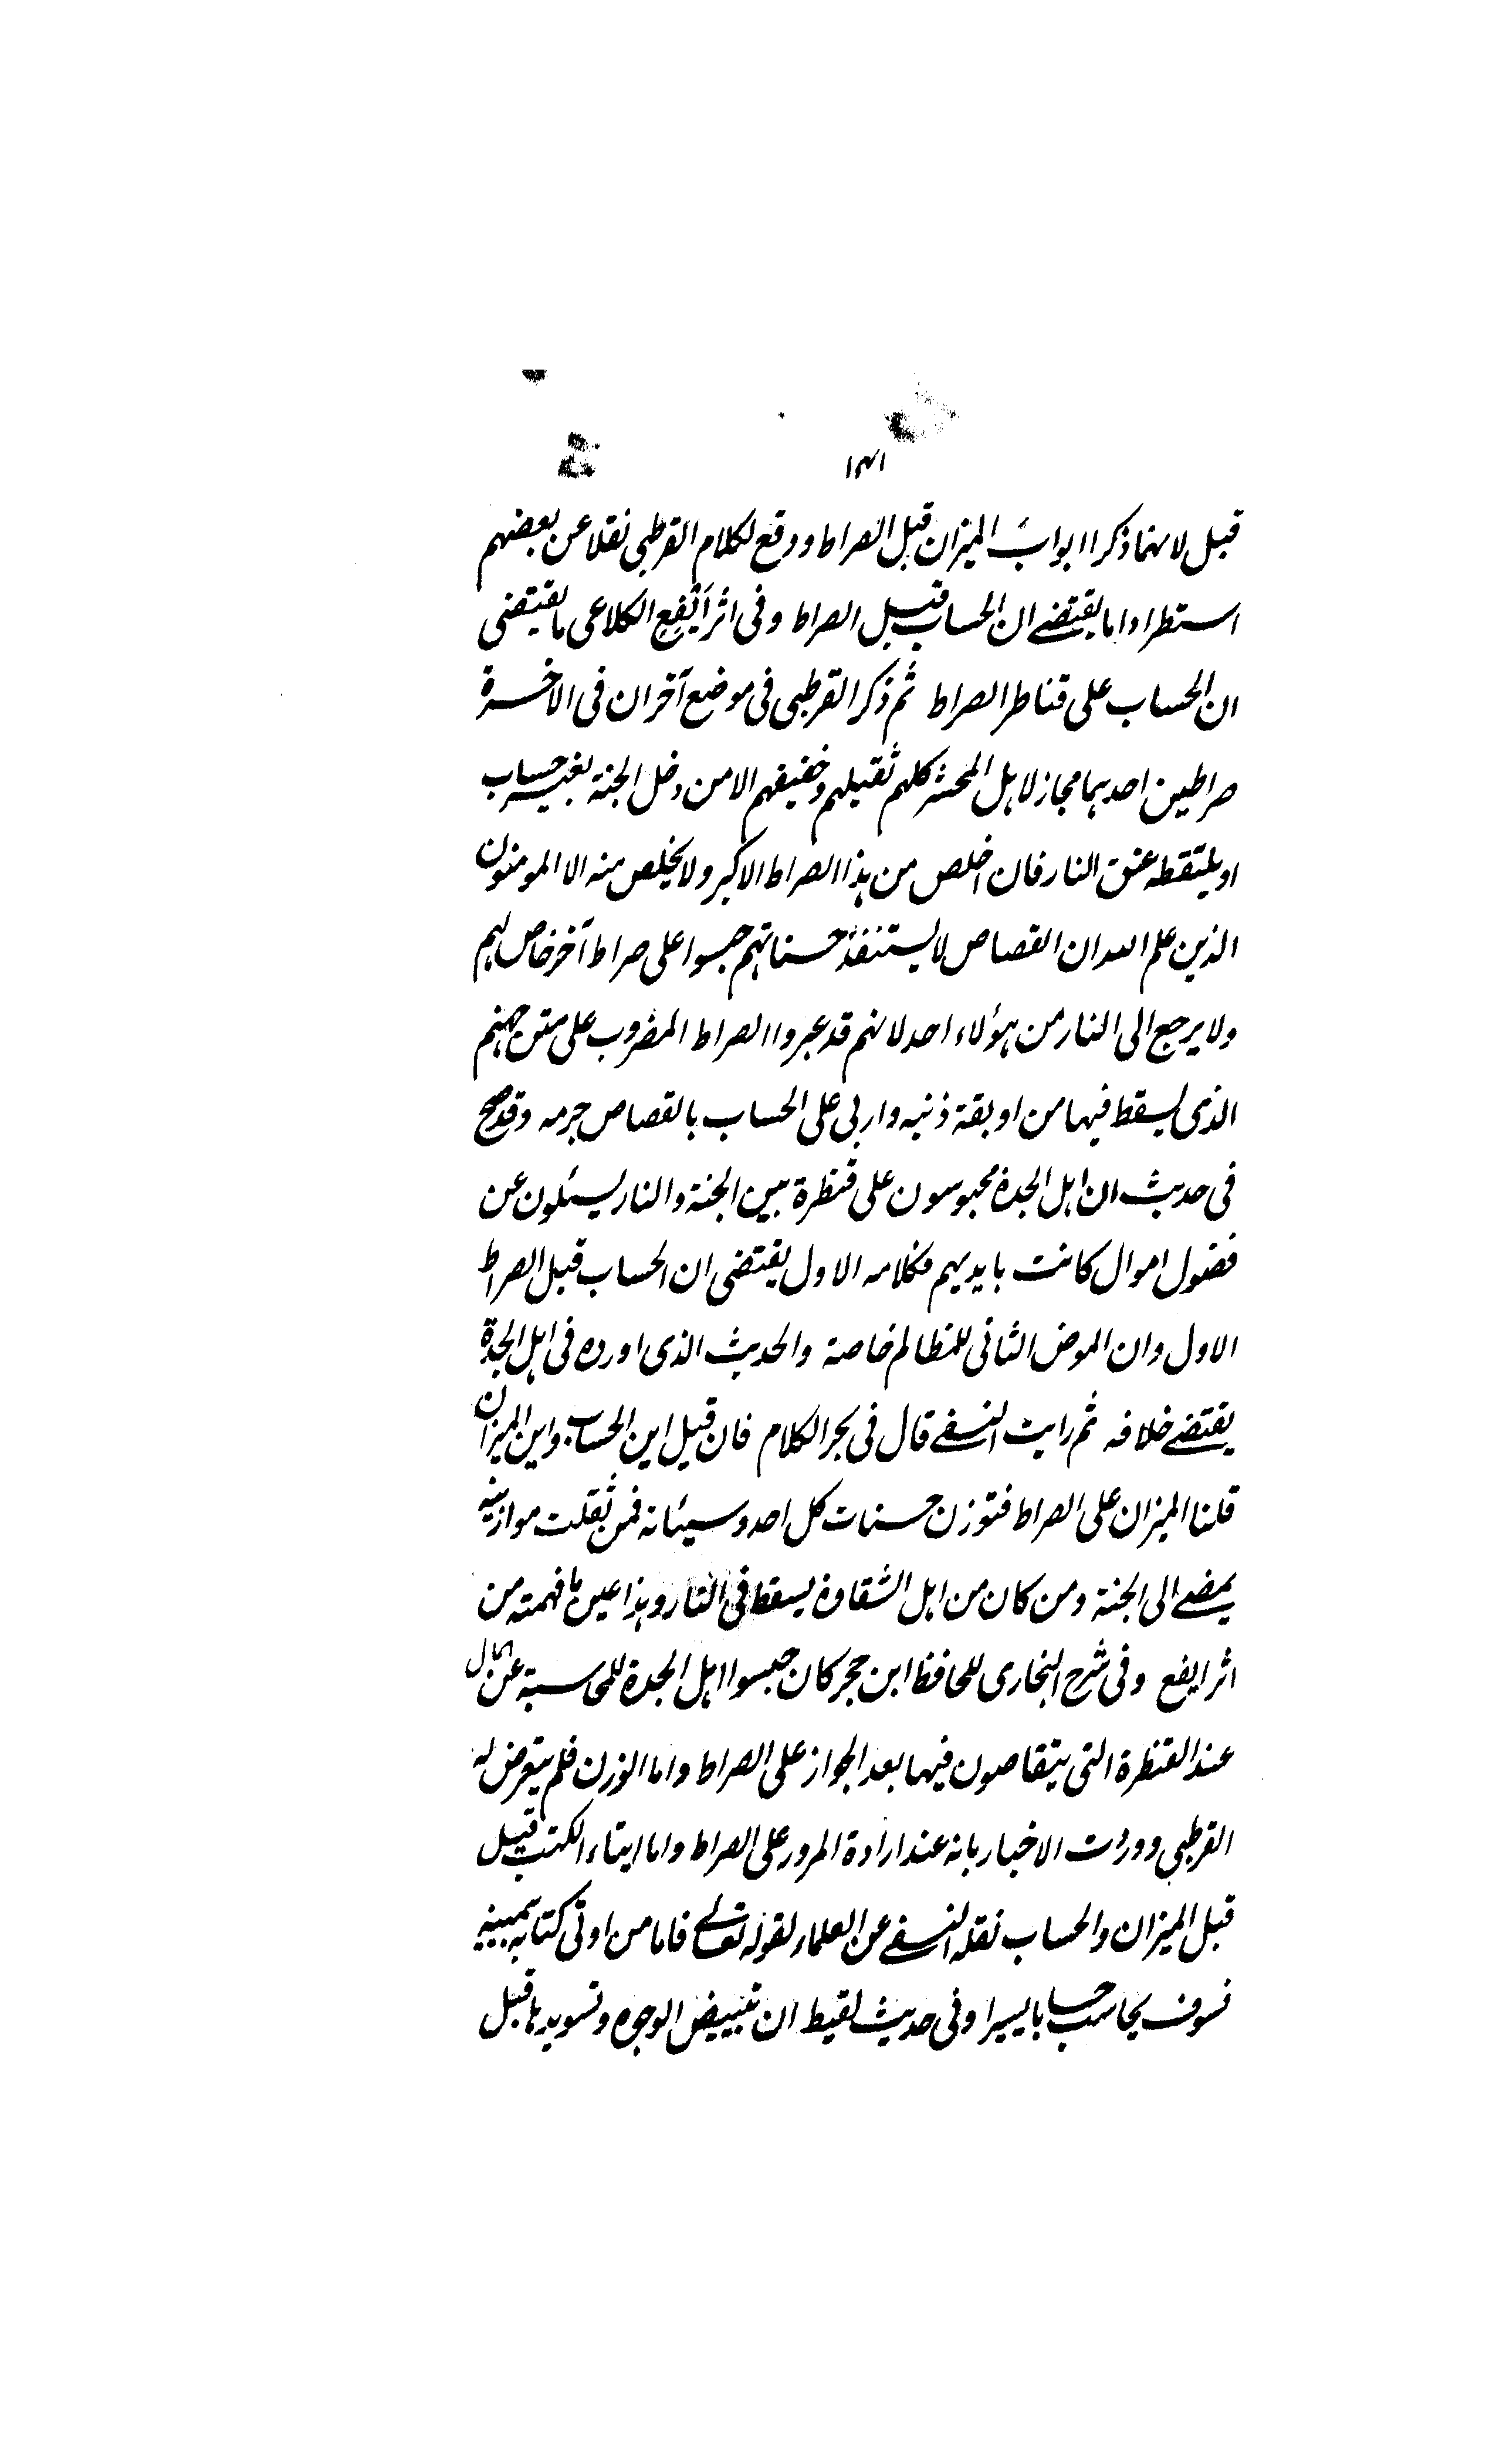 ۱۴۱
قبل لانهما ذكرا ابواب الميزان قبل الصراط ووقع لكلام القرطبى نقلا عن بعضهم
استطرادا ما يقتضے ان الحساب قبل الصراط وفى اثر ايفع الكلاعى ما يقتضى
ان الحساب على قناطر الصراط ثم ذكر القرطبى فى موضع آخر ان فى الاخرة
صراطين احدهما مجاز لاهل المحشر كلهم ثقيلهم وخفيفهم الا من دخل الجنة بغير حساب
او يلتقطه عنق النار فان اخلص من هذا الصراط الاكبر ولا يخلص منه الا المومنون
الذين علم الله ان القصاص لا يستنفذ حسناتهم حبسوا على صراط آخر خاص لهم
ولا يرجع الى النار من هؤلاء احد لانهم قد عبروا الصراط المضروب على متن جهنم
الذى يسقط فيها من اوبقة ذنبه واربى على الحساب بالقصاص جرمه وقد صح
فى حديث ان اهل الجدة محبوسون على قنطرة بين الجنة والنار يسئلون عن
فضول اموال كانت بايديهم فكلامه الاول يقتضى ان الحساب قبل الصراط
الاول وان الموض الثانى للمظالم خاصة والحديث الذى اورده فى اهل الجدة
يقتضے خلافه ثم رايت النسفے قال فى بحر الكلام فان قيل اين الحساب واين الميزان
قلنا الميزان على الصراط فتوزن حسنات كل احد وسيئاته فمن ثقلت موازينه
يمضے الى الجنة ومن كان من اهل الشقاوة يسقط فى النار وهذا عين ما فهمته من
اثر ايفع وفى شرح البخارى للحافظ ابن حجر كان حبسوا اهل الجدة للمحاسبة عن المال
عند القنطرة التى يتقاصون فيها بعد الجواز على الصراط واما الوزن فلم يتعرض له
القرطبى ووردت الاخبار بانه عند ارادة المرور على الصراط واما ايتاء الكتب قيل
قبل الميزان والحساب نقله النسفے عن العلماء لقوله تعالے فاما من اوتى كتابه بيمينه
فسوف يحاسب حسابا يسيرا وفى حديث لقيط ان تبييض الوجوه وتسويدها قبل